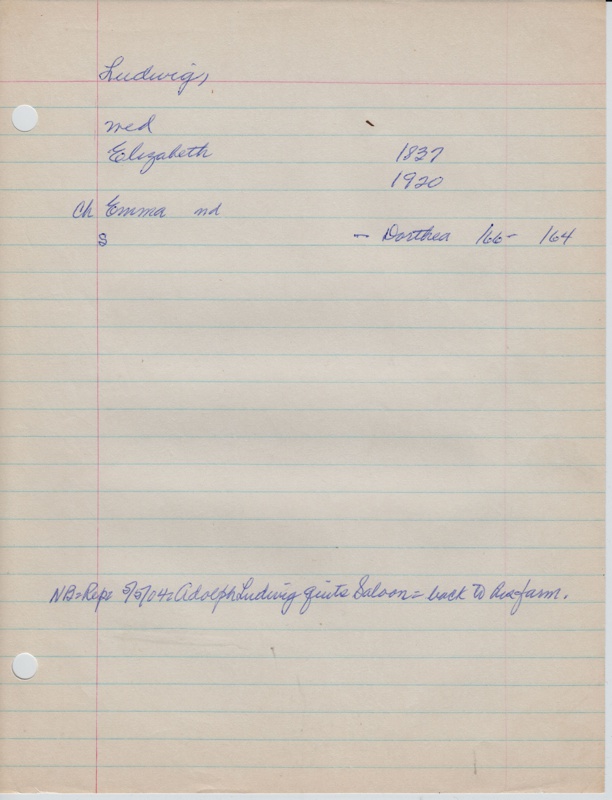 Ludwig,
md
Elizabeth 1837
1920
Ch Emma nd
S - Dorthea 166- 164
NB=Rep= 5/5/04=Adolph Ludwig quits Saloon= back to his farm.